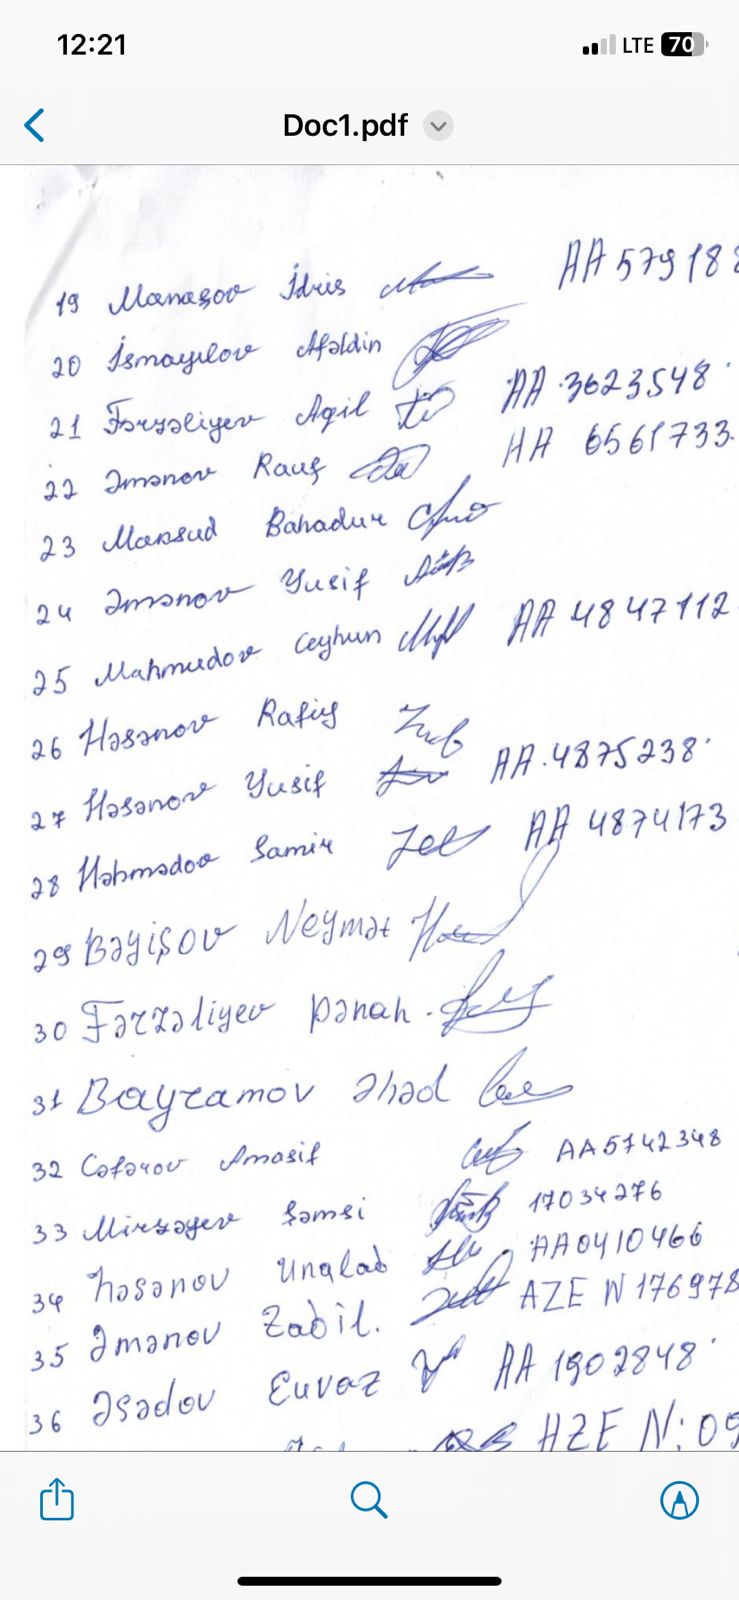 12:21 LTE 70
Doc1.pdf
19 Manaşov İdris AA 579188
20 İsmayılov Afəldin
21 Fərzəliyev Aqil AA 3623548
22 Əmənov Rauf AA 6561733
23 Maksud Bahadur
24 Əmənov Yusif
25 Mahmudov Ceyhun AA 4847112
26 Həsənov Rafiq
27 Həsənov Yusif AA 4875238
28 Həhmədov Samir AA 4874173
29 Bəyişov Neymət
30 Fərzəliyev Pənah
31 Bayramov Əhəd
32 Cəfərov Amasif AA5742348
33 Mirzəyev Şəmsi 17034276
34 həsənov AA0410466
35 Əmənov Zabil. AZE N 176978
36 Əsədov Euvaz AA 1902848
AZE N: 09